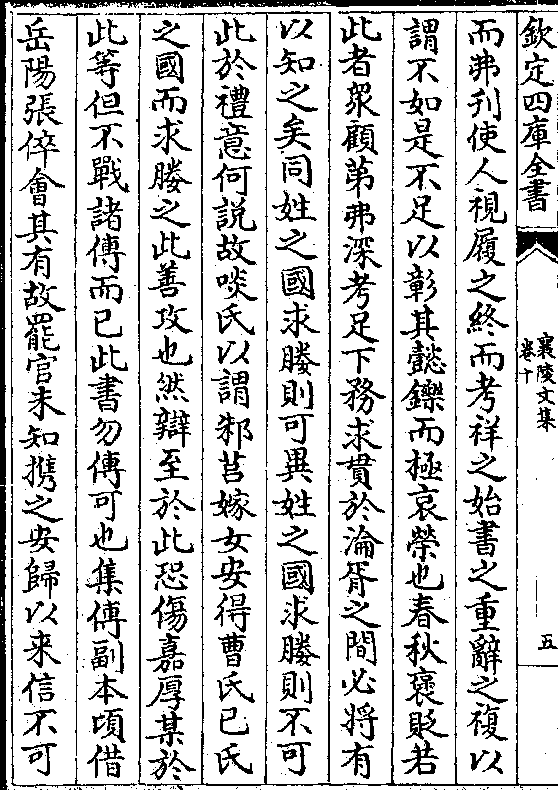 欽定四庫全書
襄陵文集
卷十
五
而弗刋使人視履之終而考祥之始書之重辭之複以
謂不如是不足以彰其懿鑠而極哀榮也春秋褒貶若
此者衆顧第弗深考足下務求貫於淪胥之間必將有
以知之矣同姓之國求媵則可異姓之國求媵則不可
此於禮意何説故啖氏以謂邾莒嫁女安得曹氏已氏
之國而求媵之此善攻也然辯至於此恐傷嘉厚某於
此等但不戰諸傳而已此書勿傳可也集傳副本頃借
岳陽張倅會其有故罷官未知携之安歸以来信不可